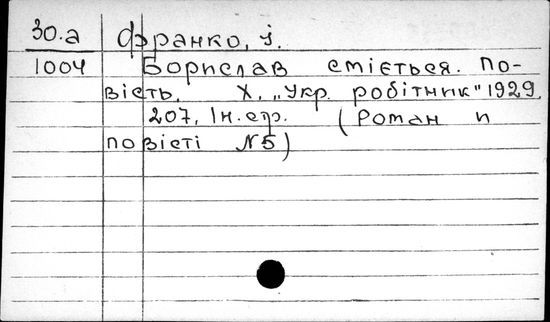 30.а Франко, І.
1004 Борислав сміється. По-
вість. Х. „Укр. робітник" 1929.
207, Ін. стр. (Роман и
повісті №5)